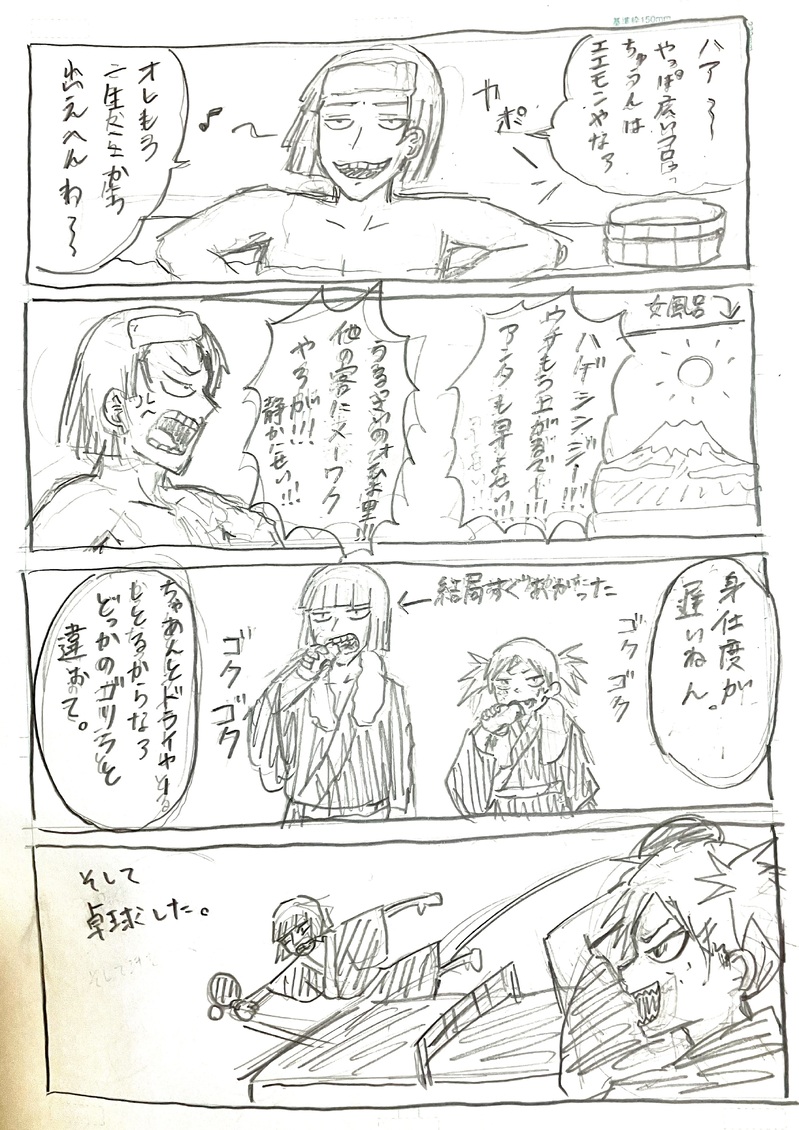 ハア～～
やっぱ広いフロゆう
ちゅうんは
エエモンやなァ
カポ
オレもう
一生ここから
出えへんわ～～
女風呂
ハゲシンジー!!!
ウチもう上がるでー!
アンタも早よせい!!!
うるさいのオ
他の客にメーワク
やろが!!!
静かにせい!!!
身仕度が
遅いねん。
ゴクゴク
←結局すぐあがった
ゴクゴク
ちゃあんとドライヤー
しとるからなァ
どっかのゴリラと
違おて。
そして
卓球した。
基準枠150mm